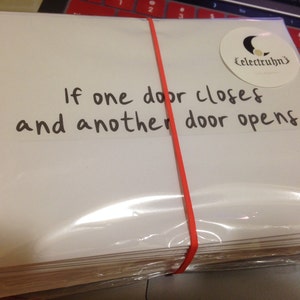 {electruhn}
If one door closes
and another door opens